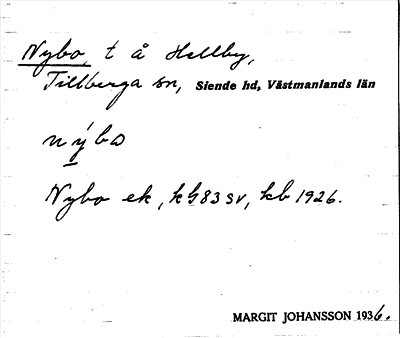 Nybo, t å Hellby,
Tillberga sn, Siende hd, Västmanlands län
nýbo
Nybo ek, kG83sv, kb 1926.
MARGIT JOHANSSON 1936.